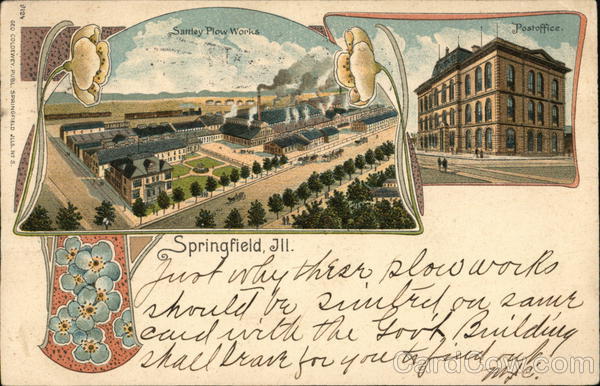 Sattley Plow Works
Postoffice.
9124
GEO COLDEWEY, PUBL. SPRINGFIELD ILL. Nº 5.
Springfield, Ill.
Just why these plow works
should be on same
card with the Gov't Building
shall leave for you to find out.
CardCow.com